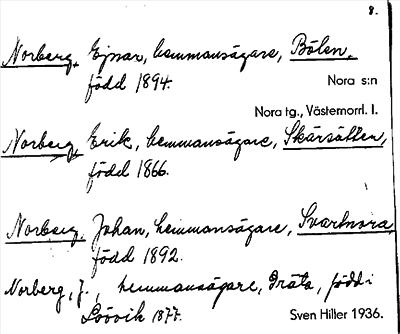 8.
Norberg, Ejnar, hemmansägare, Bölen,
född 1894.
Nora s:n
Nora tg., Västernorrl. l.
Norberg, Erik, hemmansägare, Skärsätten,
född 1866.
Norberg, Johan, hemmansägare, Svartnora,
född 1892.
Norberg, J., hemmansägare, Gräta, född i
Lövvik 1877.
Sven Hiller 1936.